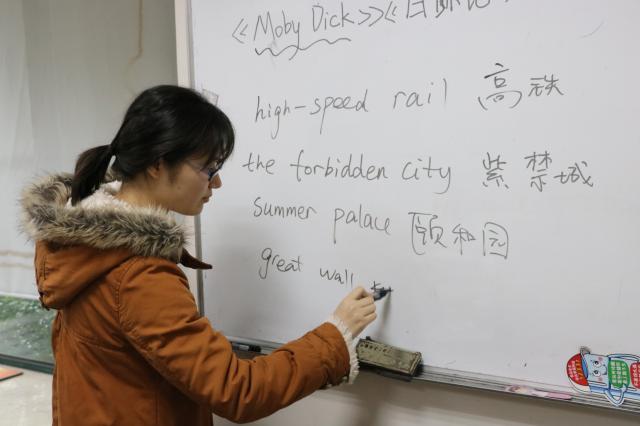 《Moby Dick》《白鲸记
high-speed rail 高铁
the forbidden city 紫禁城
summer palace 颐和园
great wall